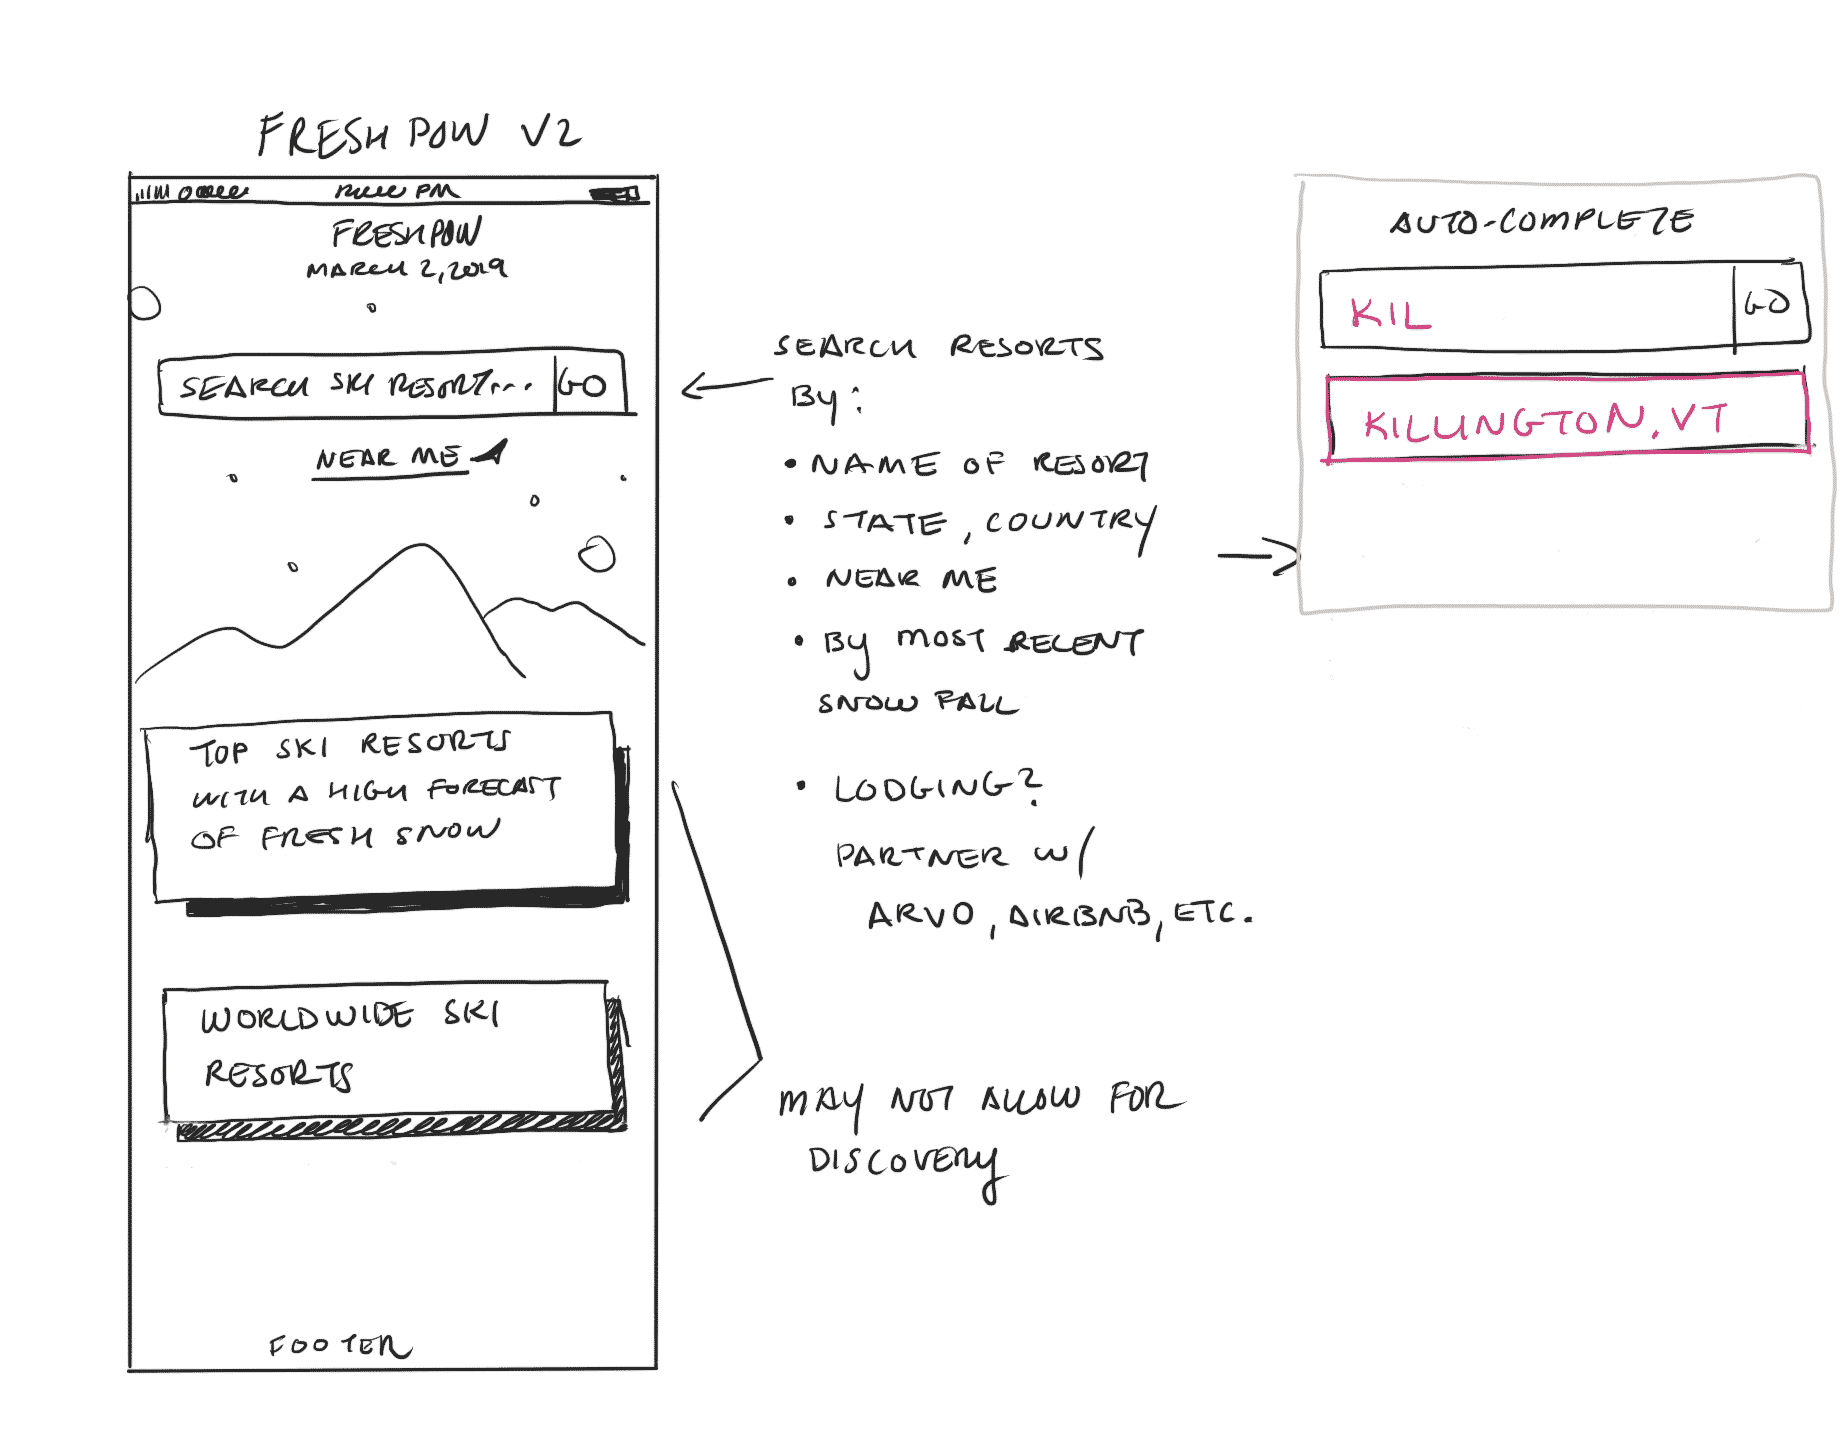 FRESH POW V2
PM
FRESH POW
MARCH 2, 2019
SEARCH SKI RESORT... GO
NEAR ME
TOP SKI RESORTS
WITH A HIGH FORECAST
OF FRESH SNOW
WORLDWIDE SKI
RESORTS
FOOTER
SEARCH RESORTS
BY:
• NAME OF RESORT
• STATE, COUNTRY
• NEAR ME
• BY MOST RECENT
SNOW FALL
• LODGING?
PARTNER W/
ARVO, AIRBNB, ETC.
MAY NOT ALLOW FOR
DISCOVERY
AUTO-COMPLETE
KIL GO
KILLINGTON, VT